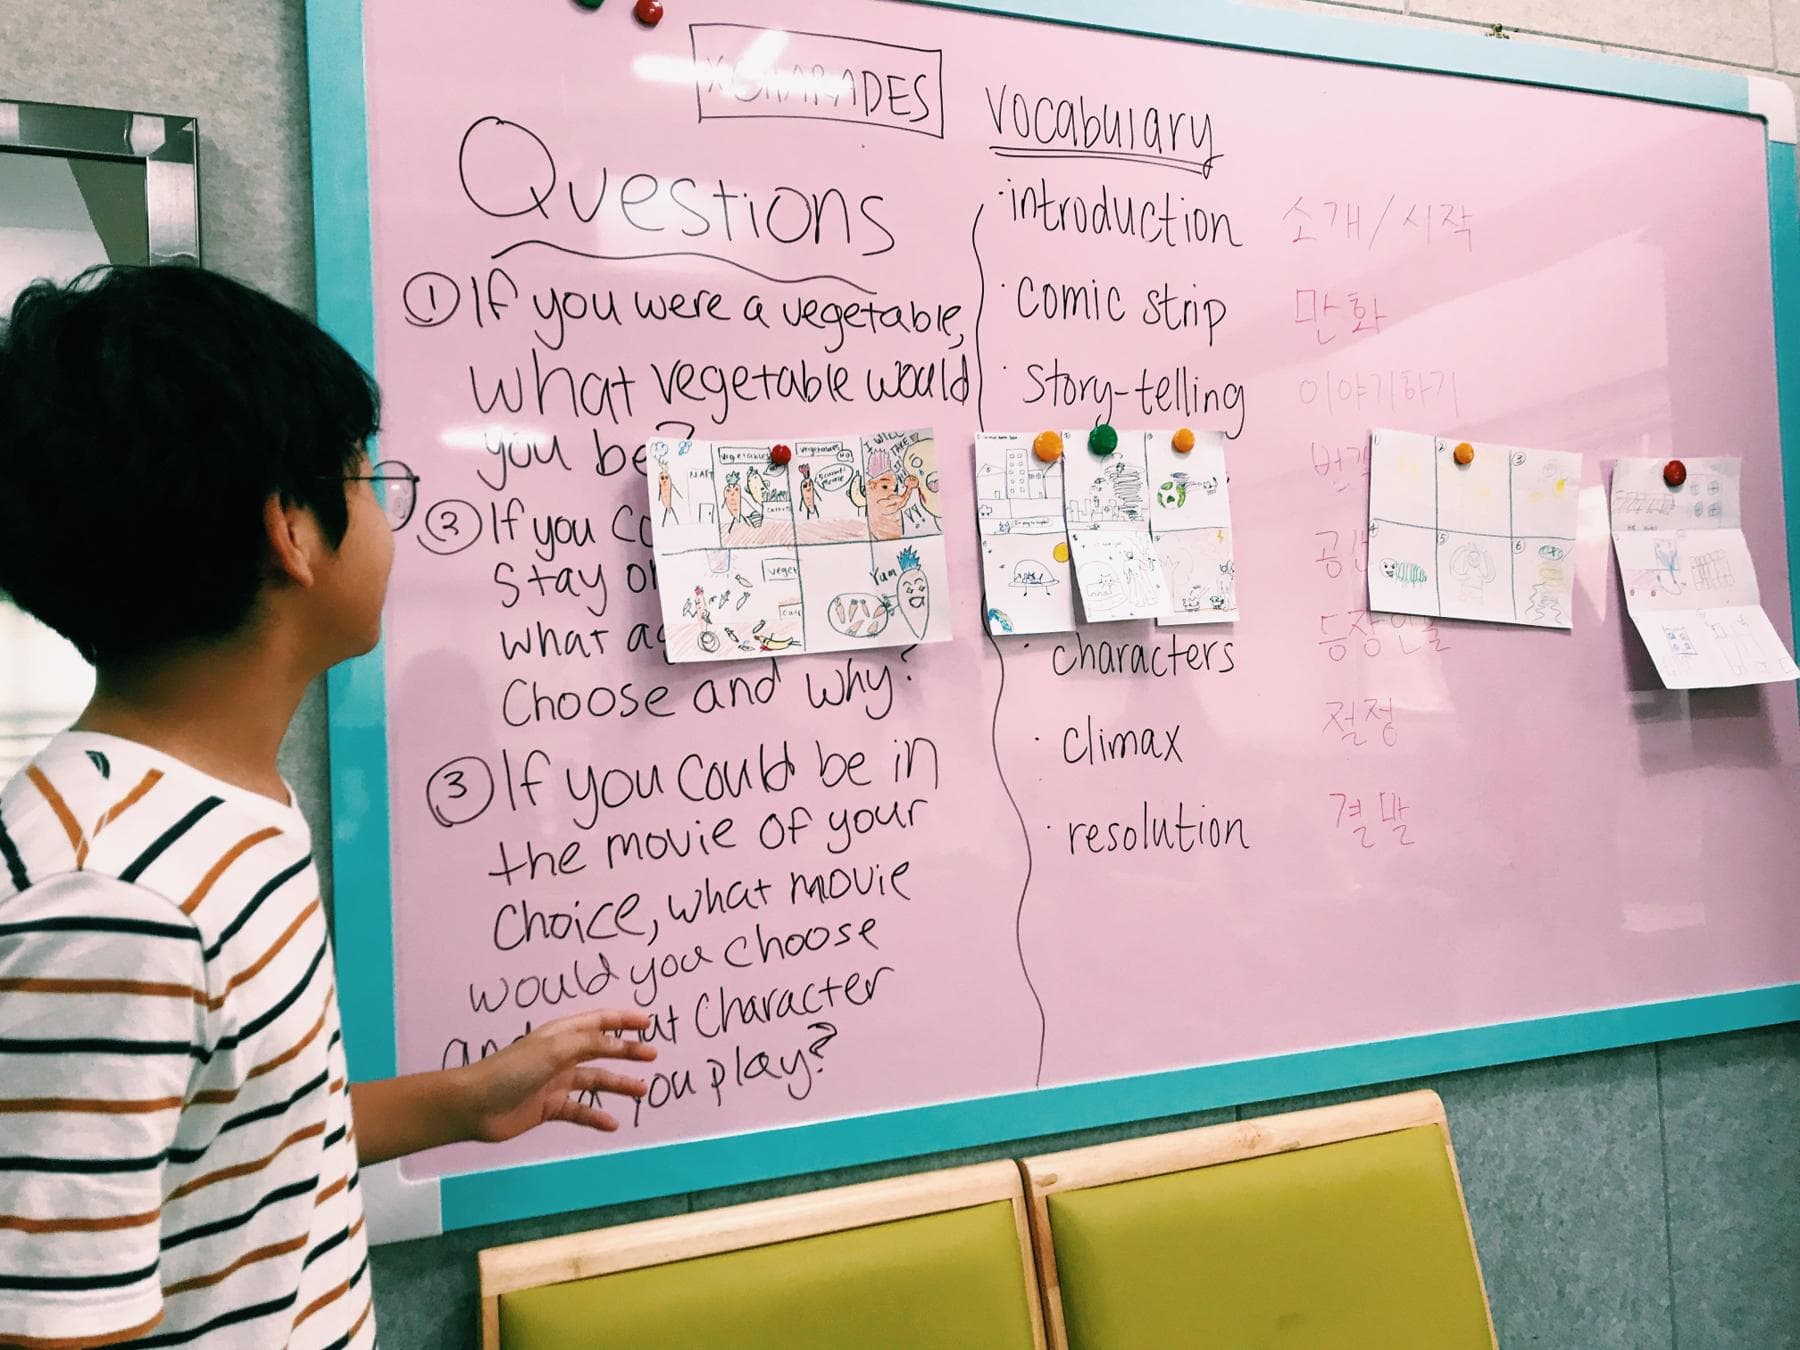 CHARADES
Questions
① If you were a vegetable,
what vegetable would
you be?
② If you
Stay
what
Choose and why?
③ If you could be in
the movie of your
Choice, what movie
would you choose
and what Character
you play?
Vocabulary
· introduction 소개/시작
· comic strip 만화
· Story-telling 이야기하기
공
characters 등장인물
· climax 절정
· resolution 결말
MART
vegetables
vegetables
NO
I WILL
TAKE
IT
Yum